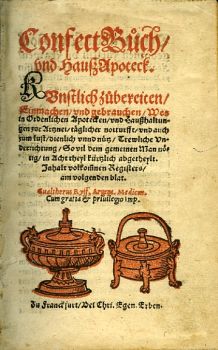 Confect Bůch/
vnd Hauß Apoteck.
Kůnstlich zůbereiten/
Einmachen/ vnd gebrauchen/ Wes
in Ordenlichen Apotecken/ vnd Haußhaltun-
gen zur Artznei/ täglicher notturfft/ vnd auch
zum lust/ dienlich vnnd nütz/ Trewliche Vn-
derrichtung/ So vil dem gemeinen Man nö-
tig/ in Acht theyl kürtzlich abgetheylt.
Inhalt volkom̃nen Registers/
am volgenden blat.
Gualtherus Ryff, Argent. Medicus.
Cum gratia & priuilegio imp.
Zu Franckfurt/ Bei Chri. Egen. Erben.